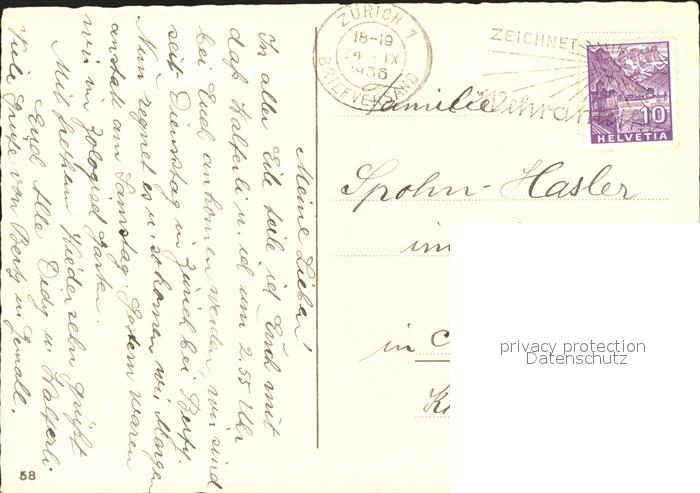 Meine Lieben!
In aller Eile teile ich Euch mit
daß Halferli u. ich um 2.55 Uhr
bei Euch ankomen werden, wir sind
seit Dienstag in Zürich bei Berty.
Nun regnet es u. so komen wir Morgen
anstatt am Samstag. Gestern waren
wir im Zologisch Garten.
Mit frohem Wiedersehn grüßt
Euch Alle Didy u. Halferli
Viele Grüße von Berty u. Gemahl.
58
ZÜRICH 1
18-19
24. IX
1936
BRIEFVERSAND
ZEICHNET
Wehranleihe
10
HELVETIA
Familie
Spohn-Hasler
im
in C
K
privacy protection
Datenschutz